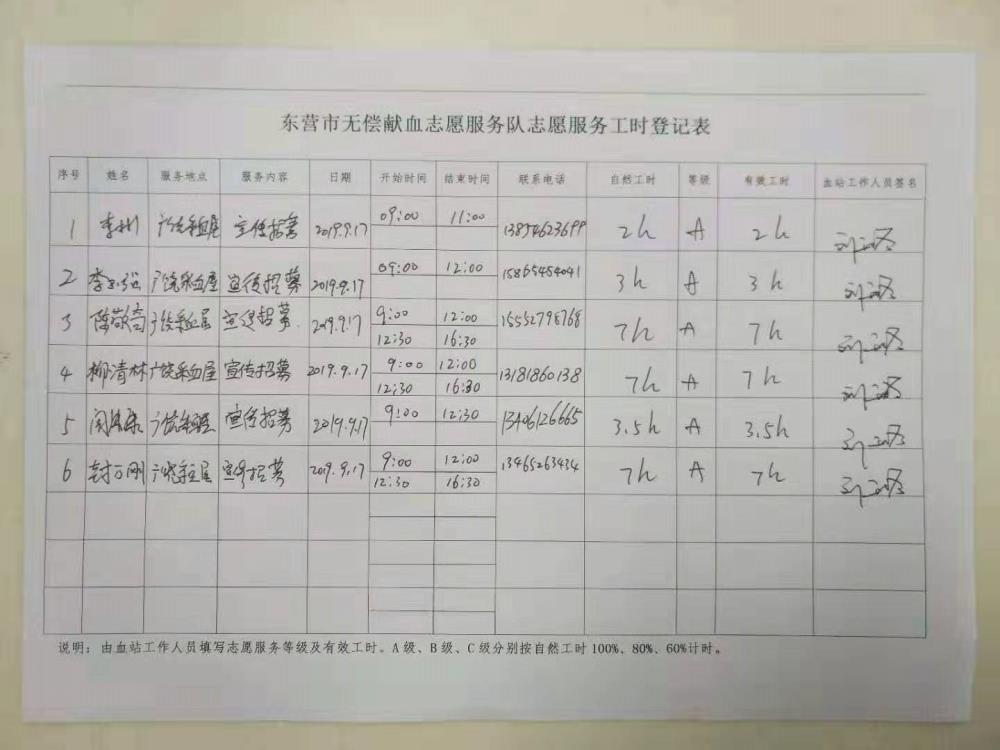 东营市无偿献血志愿服务队志愿服务工时登记表
序号 姓名 服务地点 服务内容 日期 开始时间 结束时间 联系电话 自然工时 等级 有效工时 血站工作人员签名
1 李彬 广饶采血屋 宣传招募 2019.9.17 09:00 11:00 13854623699 2h A 2h
2 广饶采血屋 宣传招募 2019.9.17 09:00 12:00 15865454041 3h A 3h
3 广饶采血屋 宣传招募 2019.9.17 9:00 12:00 15552798768 7h A 7h
12:30 16:30
4 柳清林 广饶采血屋 宣传招募 2019.9.17 9:00 12:00 13181860138 7h A 7h
12:30 16:30
5 广饶采血屋 宣传招募 2019.9.17 9:00 12:30 13406126665 3.5h A 3.5h
6 封万刚 广饶采血屋 宣传招募 2019.9.17 9:00 12:00 13465263434 7h A 7h
12:30 16:30
说明：由血站工作人员填写志愿服务等级及有效工时。A级、B级、C级分别按自然工时100%、80%、60%计时。